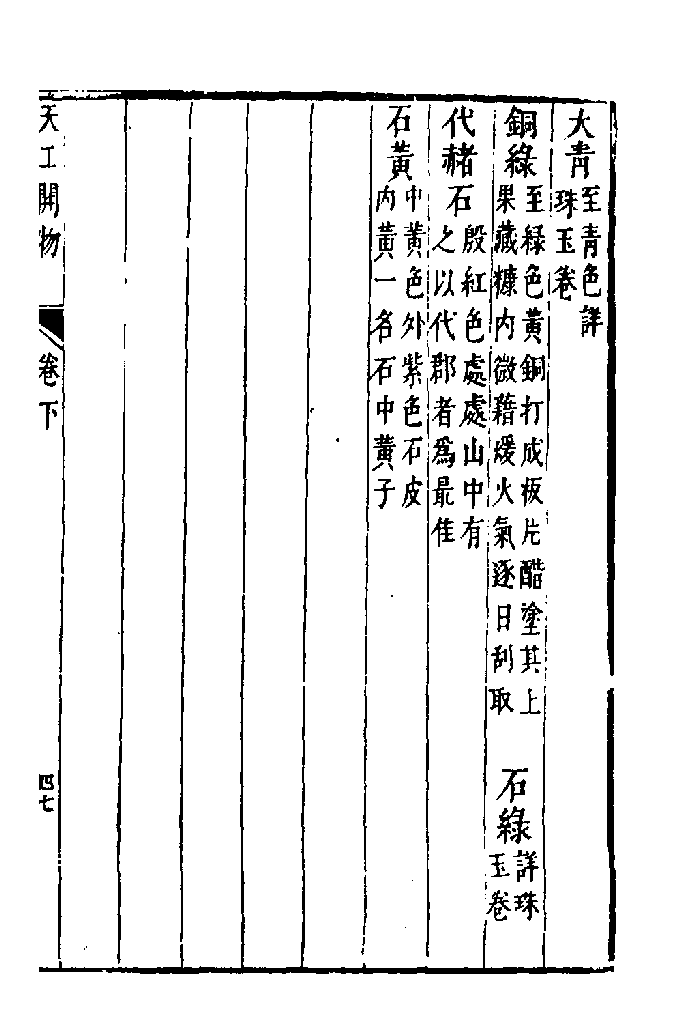 大青至青色詳珠玉卷
銅綠至綠色黃銅打成板片醋塗其上果藏糠內微藉煖火氣逐日刮取　石綠詳珠玉卷
代赭石殷紅色處處山中有之以代郡者爲最佳
石黃中黃色外紫色石皮內黃一名石中黃子
天工開物　卷下　四七